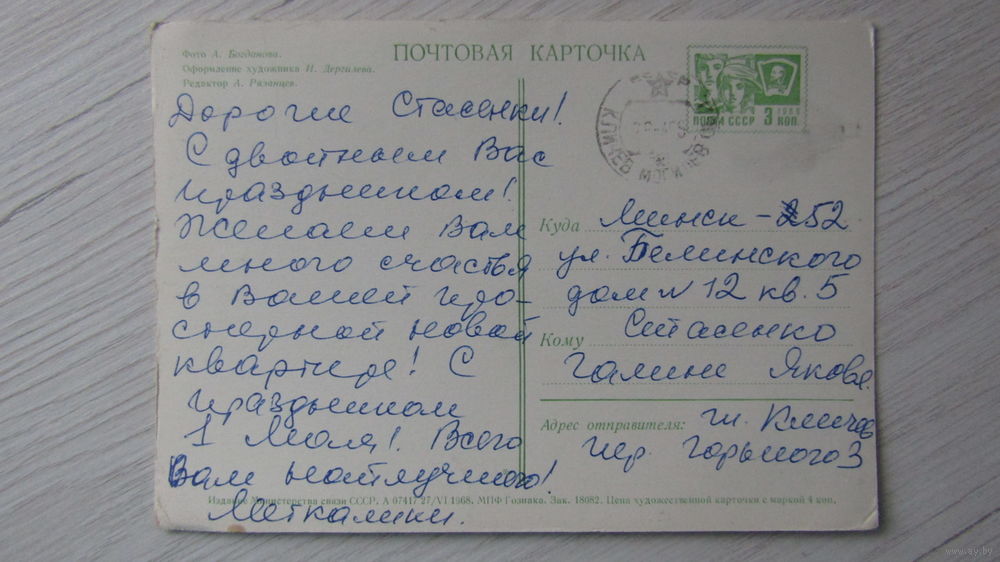 Фото А. Богданова.
Оформление художника И. Дергилева.
Редактор А. Рязанцев.
ПОЧТОВАЯ КАРТОЧКА
ПОЧТА СССР 3 КОП.
Дорогие Стасенки!
С двойным Вас
праздником!
Желаем Вам
много счастья
в Вашей про-
сторной новой
квартире! С
праздником
1 Мая! Всего
Вам наилучшего!
Куда Минск - 252
ул. Белинского
дом № 12 кв. 5
Кому Стасенко
Галине Яковл.
Адрес отправителя: гп. Кличев
пер. Горького 3
Издание Министерства связи СССР. А 07417 27/VI 1968. МПФ Гознака. Зак. 18082. Цена художественной карточки с маркой 4 коп.
www.ay.by